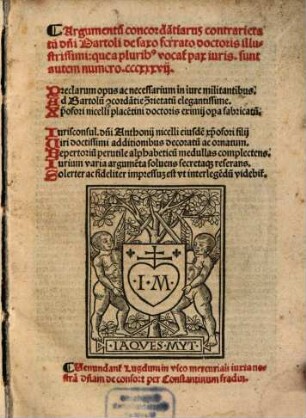 Argumentũ concordãtiarum contrarieta
tũ dñi Bartoli de saxo ferrato doctoris illu-
strissimi: que a pluribus vocatur pax iuris. sunt
autem numero. ccxxxvij.
Preclarum opus ac necessarium in iure militantibus,
Ad Bartolũ concordãtie contrarietatũ elegantissime.
Xpofori nicelli placẽtini doctoris eximij opa fabricatũ.
Iurisconsul. dñi Anthonij nicelli eiusdẽ xpofori filij
Viri doctissimi additionibus decoratũ ac ornatum.
Repertoriũ perutile alphabeticũ medullas complectens.
Iurium varia argumẽta soluens secretaque reserans.
Solerter ac fideliter impressum est vt interlegẽdũ videbitur.
I M
IAQVES MYT
Venundantur Lugduni in vico mercuriali iuxta no-
strã dñam de confort per Constantinum fradin.